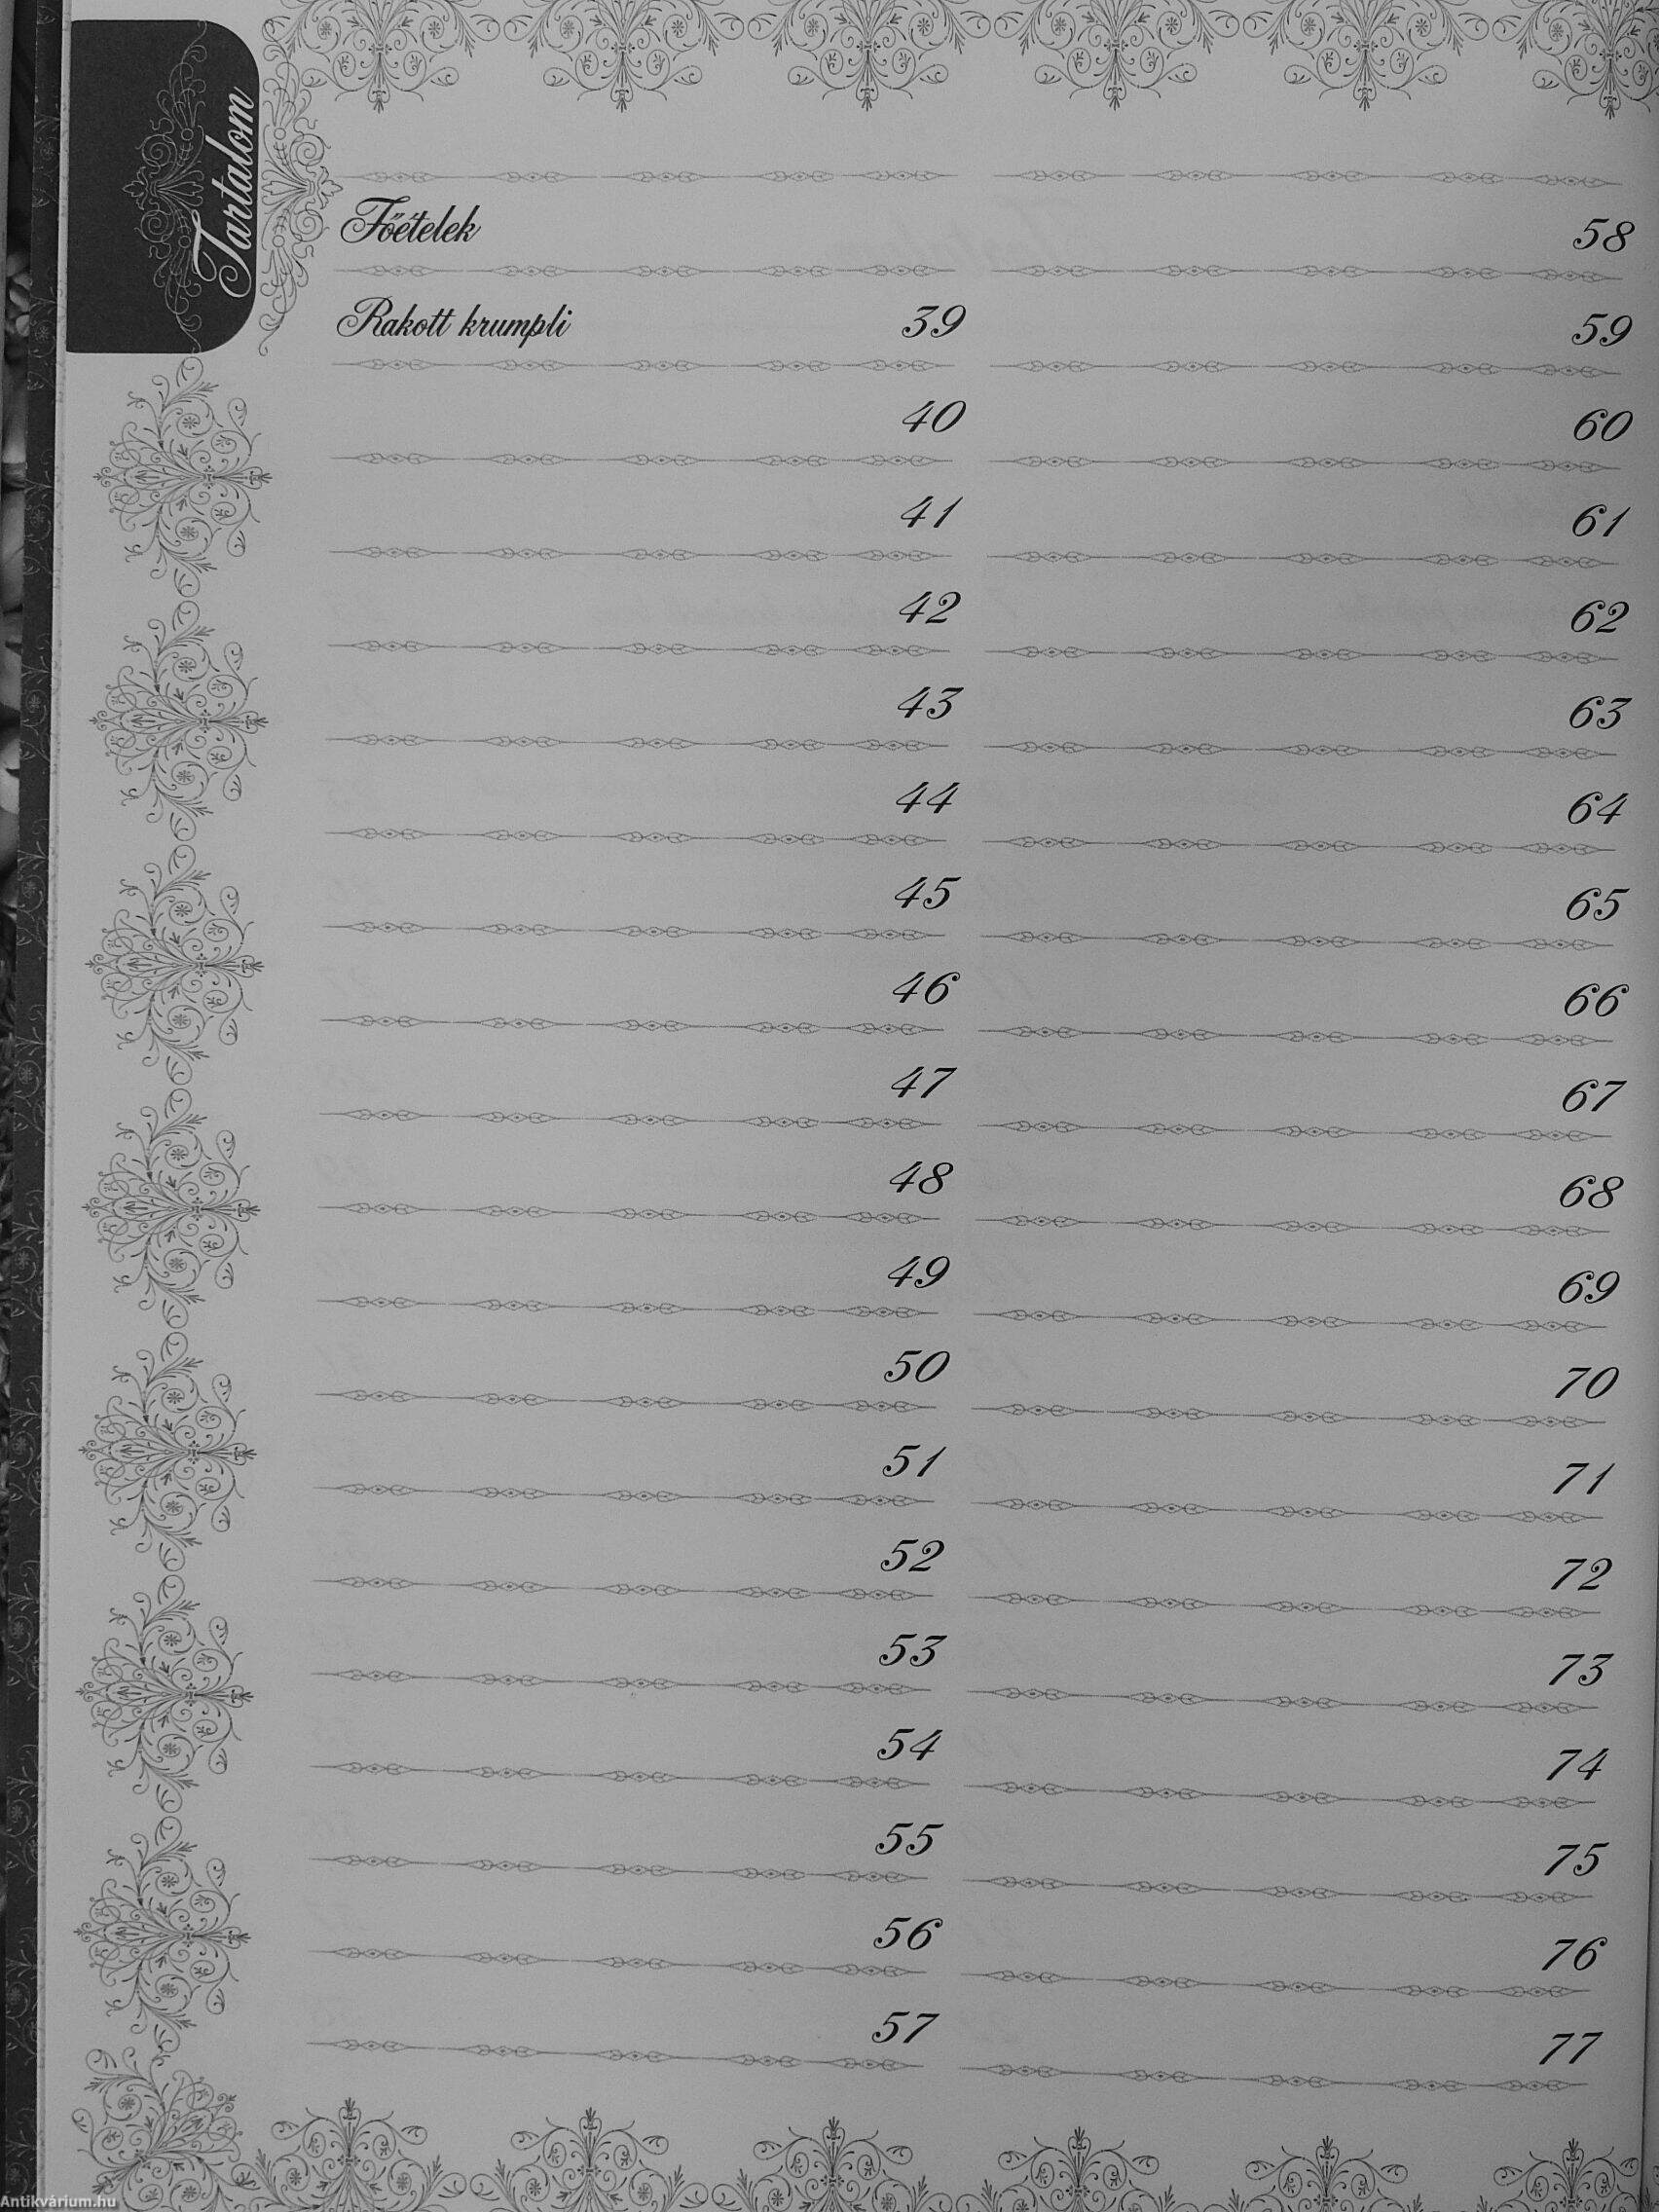 Tartalom
Főételek
Rakott krumpli 39
40
41
42
43
44
45
46
47
48
49
50
51
52
53
54
55
56
57
58
59
60
61
62
63
64
65
66
67
68
69
70
71
72
73
74
75
76
77
Antikvárium.hu